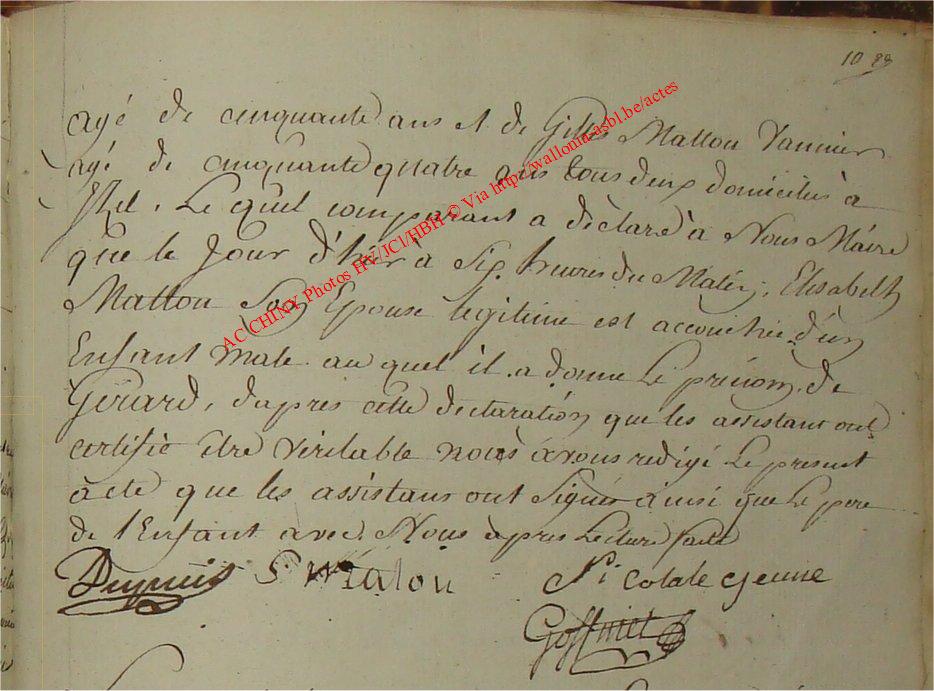 10
agé de cinquante ans et de Gilles Mallou Vannier
agé de cinquante quatre ans tous deux domiciliés à
Izel. Le quel comparant a déclaré à Nous Maire
que le Jour d'hier à Six heures du Matin, Elisabeth
Mallou Son Epouse légitime est accouchée d'un
Enfant male au quel il a donné Le prénom de
Gérard, d'aprés cette déclaration que les assistant ont
certifié être véritable nous avons redigé Le present
acte que les assistans ont Signés ainsi que Le pere
de l'Enfant avec Nous après Lecture faite
Dupuis Malou Nicolale Jeune
Goffinet
AC CHINY Photos HV/JCI/HBH © Via http://wallonia-asbl.be/actes